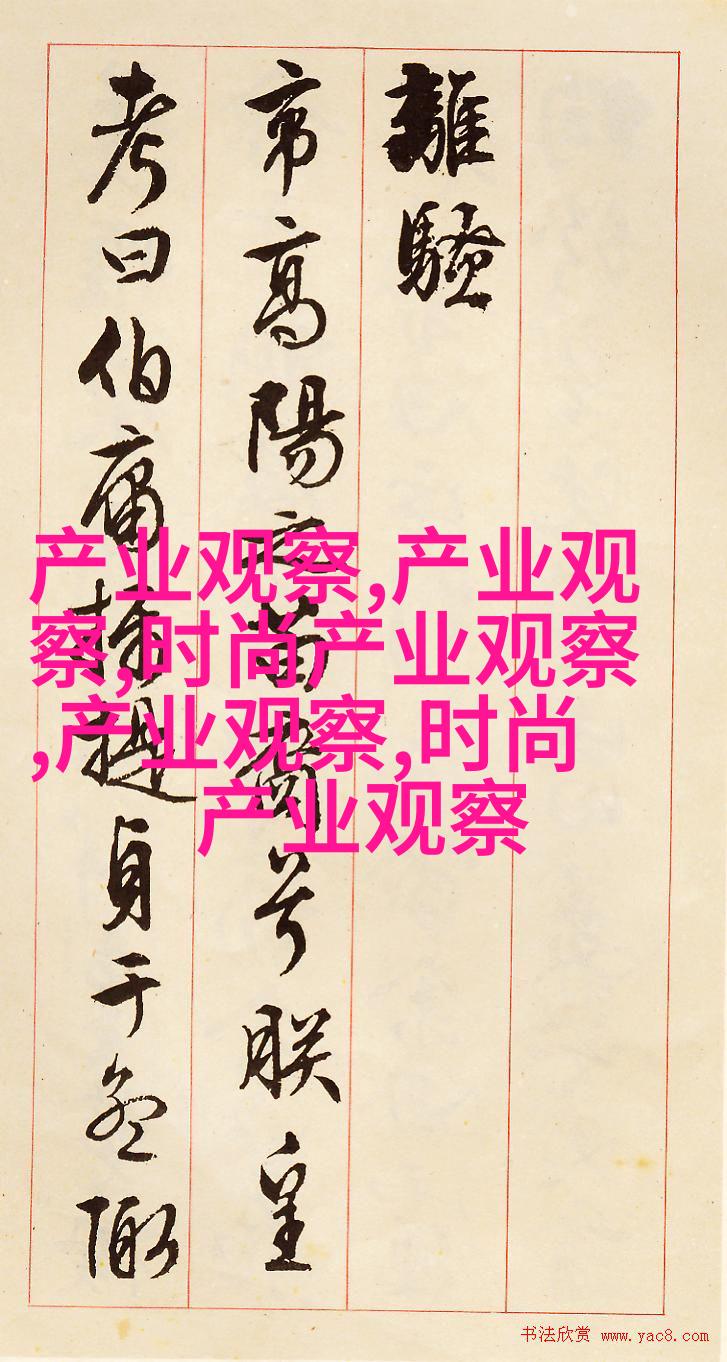 離騷
帝高陽之苗裔兮朕皇
考曰伯庸攝提貞于孟陬
产业观察,产业观
察,时尚产业观察
,产业观察,时尚
产业观察
书法欣赏 www.yac8.com